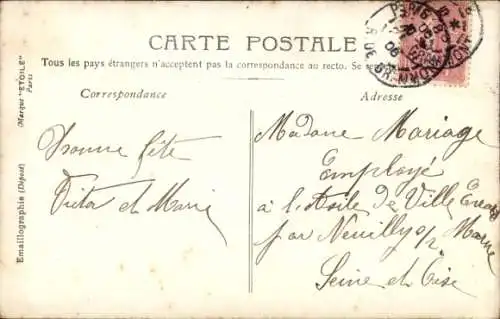 CARTE POSTALE
Tous les pays étrangers n'acceptent pas la correspondance au recto. Se
Correspondance
Adresse
Emaillographie (Déposé)
(Marque "ETOILE")
Paris
PARIS
Bonne fête
et Marie
Madame Mariage
Employé
à l'Asile de Ville Evrard
par Neuilly s/ Marne
Seine et Oise